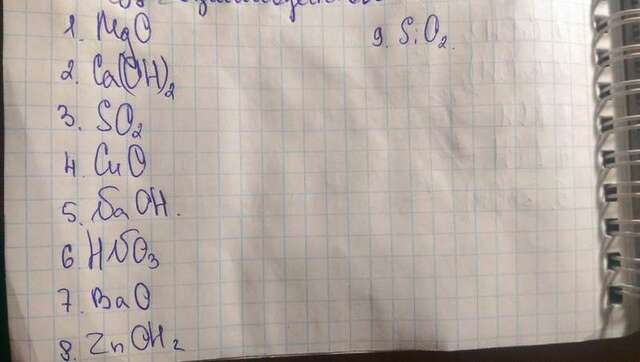 1. MgO
2. Ca(OH)2
3. SO2
4. CuO
5. NaOH.
6 HNO3
7. BaO
8. ZnOH2
9. SiO2.